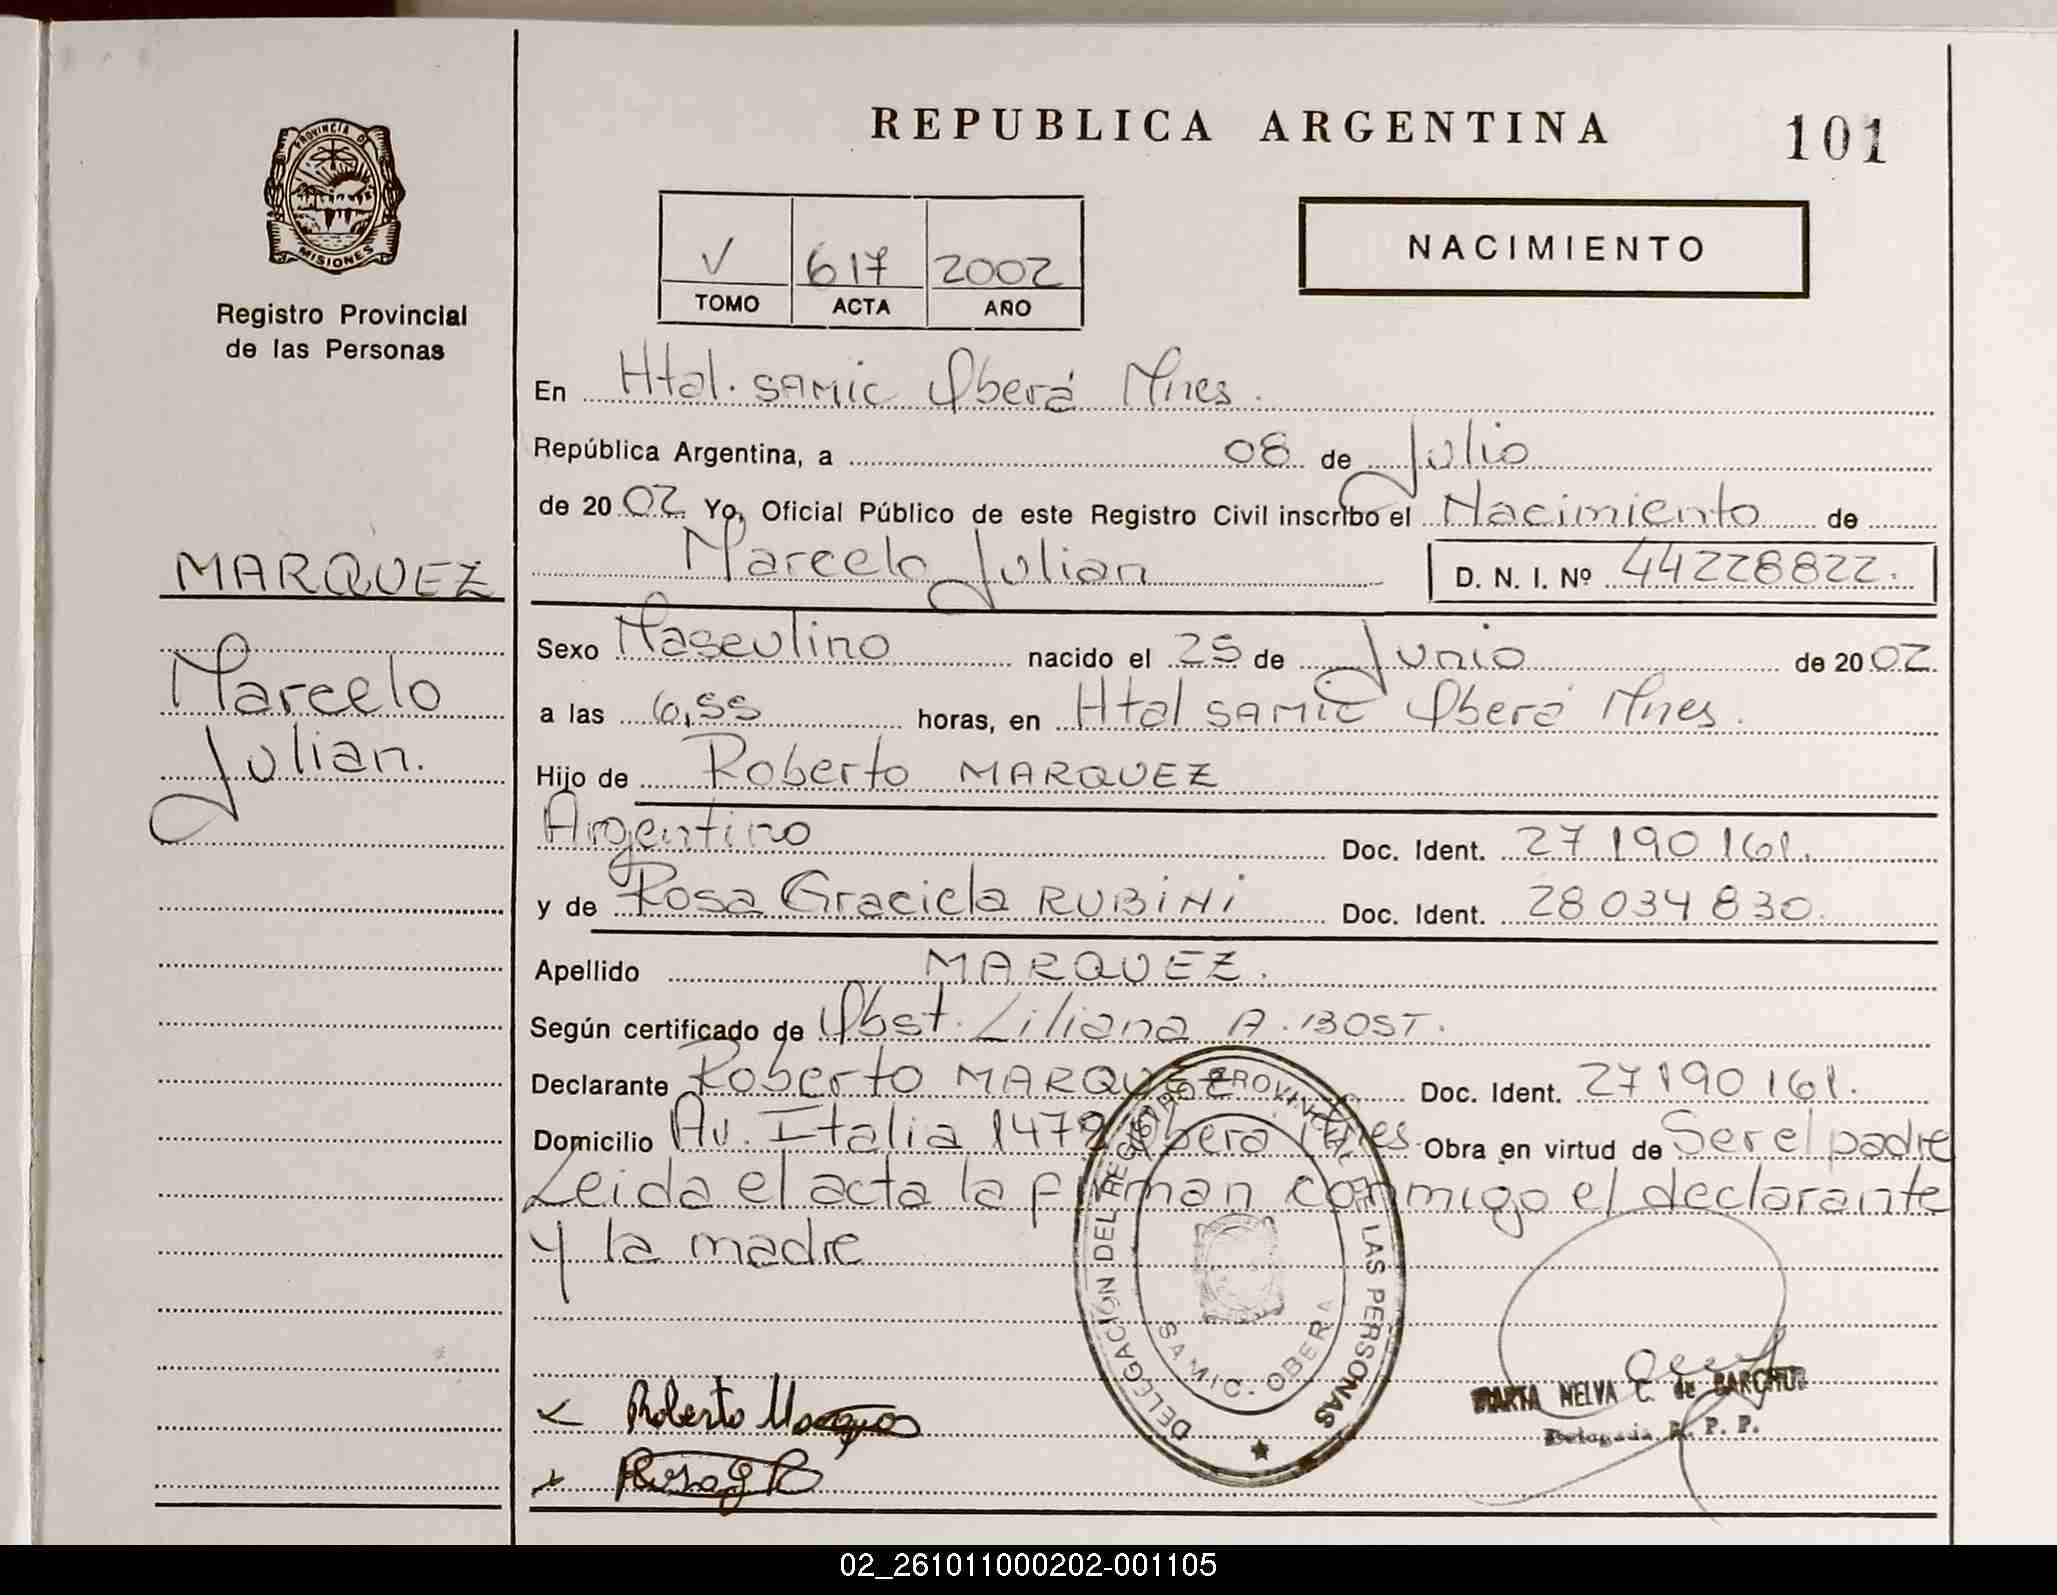 REPUBLICA ARGENTINA
101
PROVINCIA DE
MISIONES
Registro Provincial
de las Personas
V 617 2002
TOMO ACTA AÑO
NACIMIENTO
En Htal. SAMIC Oberá Mnes.
República Argentina, a 08 de Julio
de 2002 Yo, Oficial Público de este Registro Civil inscribo el Nacimiento de
Marcelo Julian D. N. I. Nº 44228822.
MARQUEZ
Marcelo
Julian.
Sexo Masculino nacido el 25 de Junio de 2002
a las 6,55 horas, en Htal SAMIC Oberá Mnes.
Hijo de Roberto MARQUEZ
Argentino Doc. Ident. 27 190 161.
y de Rosa Graciela RUBINI Doc. Ident. 28 034 830.
Apellido MARQUEZ.
Según certificado de Obst. Liliana A. BOST.
Declarante Roberto MARQUEZ Doc. Ident. 27190161.
Domicilio Av. Italia 1479 Oberá Mnes. Obra en virtud de Ser el padre
Leida el acta la firman conmigo el declarante
y la madre
DELEGACIÓN DEL REGISTRO PROVINCIAL DE LAS PERSONAS
SAMIC - OBERA
Roberto
MARTA NELVA C. de
Delegada R. P. P.
02_261011000202-001105